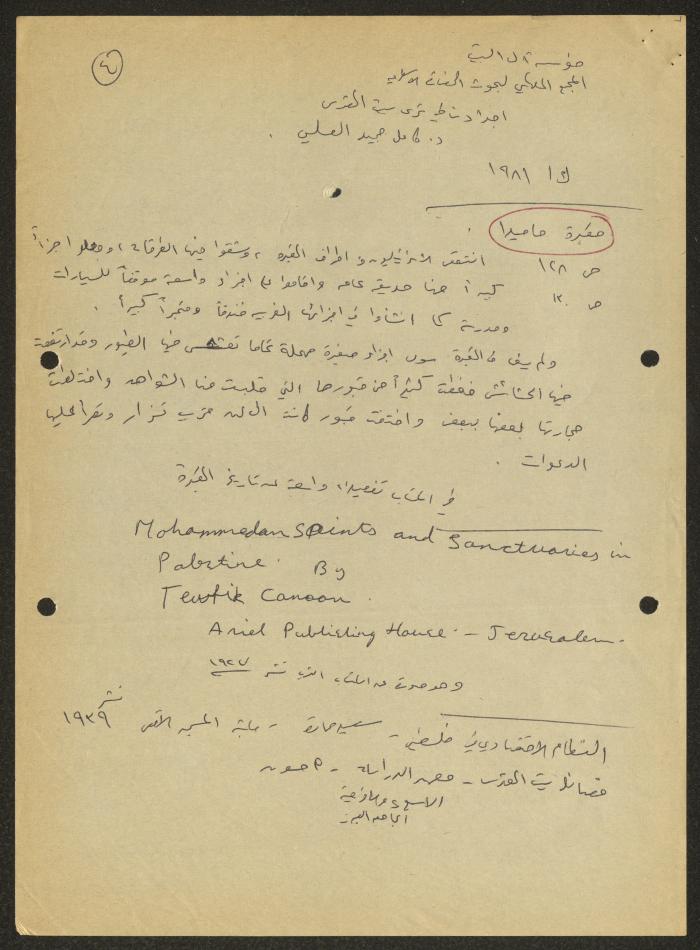 ٤
مؤسسة آل البيت
المجمع الملكي لبحوث الحضارة الإسلامية
أجدادنا في ثرى بيت المقدس
د. كامل جميل العسلي.
ك١ ١٩٨١
مقبرة ماميلا.
ص ١٢٨ انتقص الاسرائيليون اطراف المقبرة، وشقوا فيها الطرقات، وجعلوا اجزاءً
ص ١٣٠ كبيرة منها حديقة عامة واقاموا في اجزاء واسعة موقفاً للسيارات
ومدرسة كما انشأوا في اجزائها الغربية فندقاً ومتجراً كبيراً.
ولم يبق من المقبرة سوى اجزاء صغيرة مهملة تماما تعشعش فيها الطيور وقد ارتفعت
فيها الحشائش فغطت كثيراً من قبورها التي قلبت منها الشواهد واختلطت
حجارتها بعضها ببعض واختفت قبور كانت الى عهد قريب تزار وتقرأ عليها
الدعوات.
في الكتاب تفصيلات واسعة عن تاريخ المقبرة
Mohammedan Saints and Sanctuaries in
Palestine. By
Tewfik Canaan.
Ariel Publishing House - Jerusalem.
وهو صورة عن الكتاب الذي نشر ١٩٢٧
النظام الاقتصادي في فلسطين - سعيد حمادة - نشر ١٩٣٩
فضائل بيت المقدس - معهد الدراسات